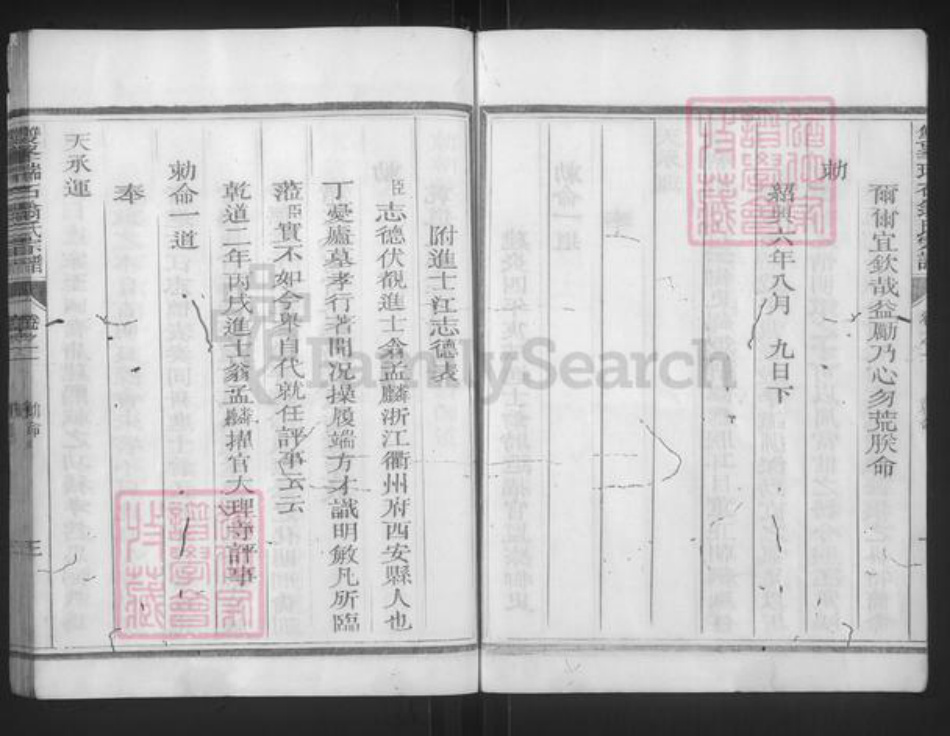 爾爾宜欽哉益勵乃心勿荒朕命
勅
紹興六年八月　九日下
附進士江志德表
臣志德伏覩進士翁孟麟浙江衢州府西安縣人也
丁憂廬墓孝行著聞况操履端方才識明敏凡所臨
蒞臣實不如今舉自代就任評事云云
乾道二年丙戌進士翁孟麟擢官大理寺評事
勅命一道
奉
天承運
FamilySearch